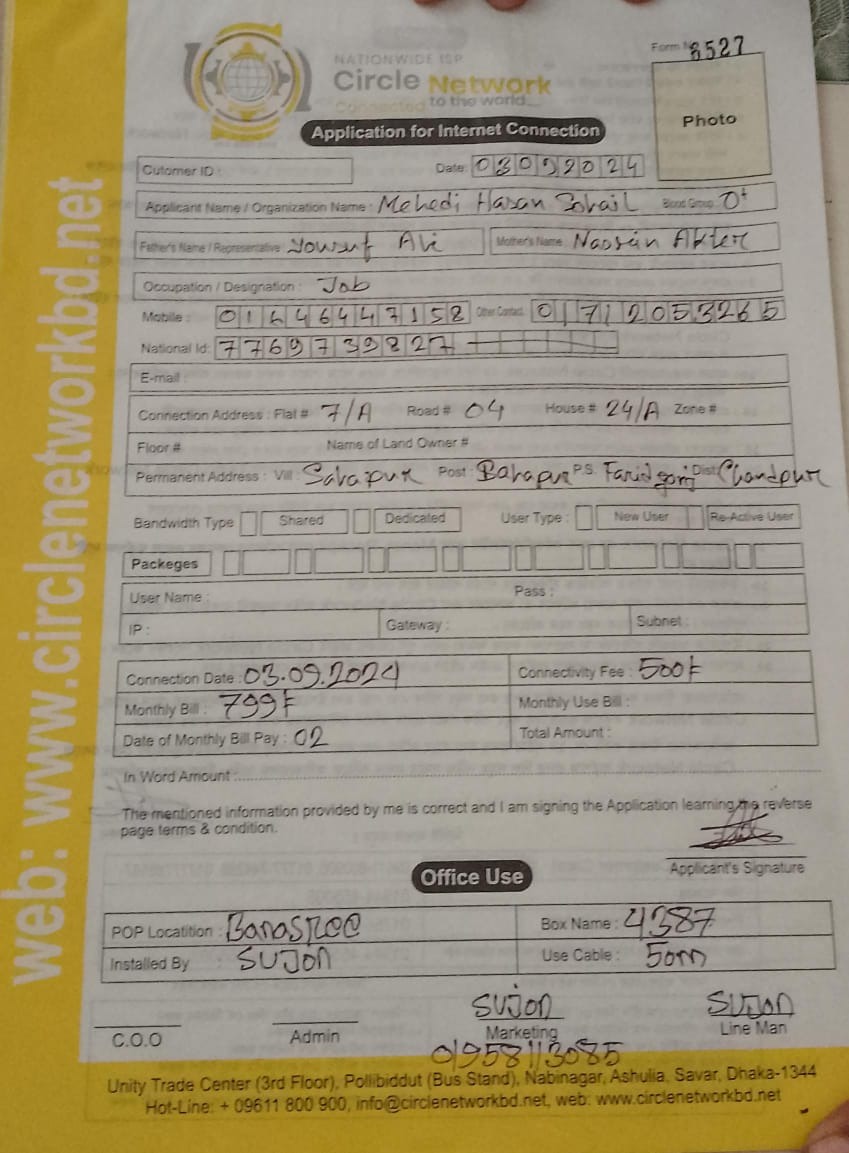 Form No 8527
NATIONWIDE ISP
Circle Network
Connected to the world
Photo
Application for Internet Connection
Cutomer ID :
Date: 03092024
Applicant Name / Organization Name : Mehedi Hasan Sohail Blood Group: O+
Father's Name / Representative: Yousuf Ali Mother's Name: Nasrin Akter
Occupation / Designation : Job
Mobile : 01646447158 Other Contact: 01712053265
National Id: 7769739827
E-mail :
Connection Address : Flat # 7/A Road # 04 House # 24/A Zone #
Floor # Name of Land Owner #
Permanent Address : Vill : Post : P.S. Faridgonj Dist: Chandpur
Bandwidth Type Shared Dedicated User Type : New User Re-Active User
Packeges
User Name : Pass :
IP : Gateway : Subnet :
Connection Date : 03.09.2024 Connectivity Fee : 500৳
Monthly Bill : 799৳ Monthly Use Bill :
Date of Monthly Bill Pay : 02 Total Amount :
In Word Amount :
The mentioned information provided by me is correct and I am signing the Application learning the reverse
page terms & condition.
Applicant's Signature
Office Use
POP Locatition : Banasree Box Name : 4387
Installed By : SUJON Use Cable : 50m
SUJON SUJON
C.O.O Admin Marketing Line Man
01958113085
Unity Trade Center (3rd Floor), Pollibiddut (Bus Stand), Nabinagar, Ashulia, Savar, Dhaka-1344
Hot-Line: + 09611 800 900, info@circlenetworkbd.net, web: www.circlenetworkbd.net
web: www.circlenetworkbd.net